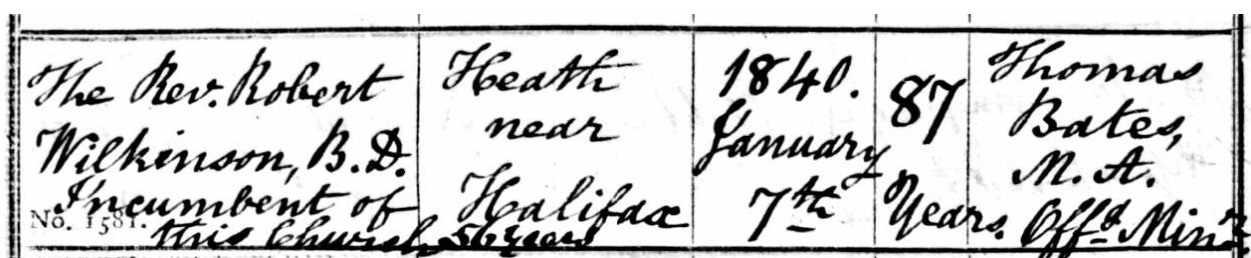 The Rev. Robert
Wilkinson, B.D.
Incumbent of
No. 1581.
this Church, 56 years
Heath
near
Halifax
1840.
January
7th
87
Years.
Thomas
Bates,
M. A.
Offg. Minr.